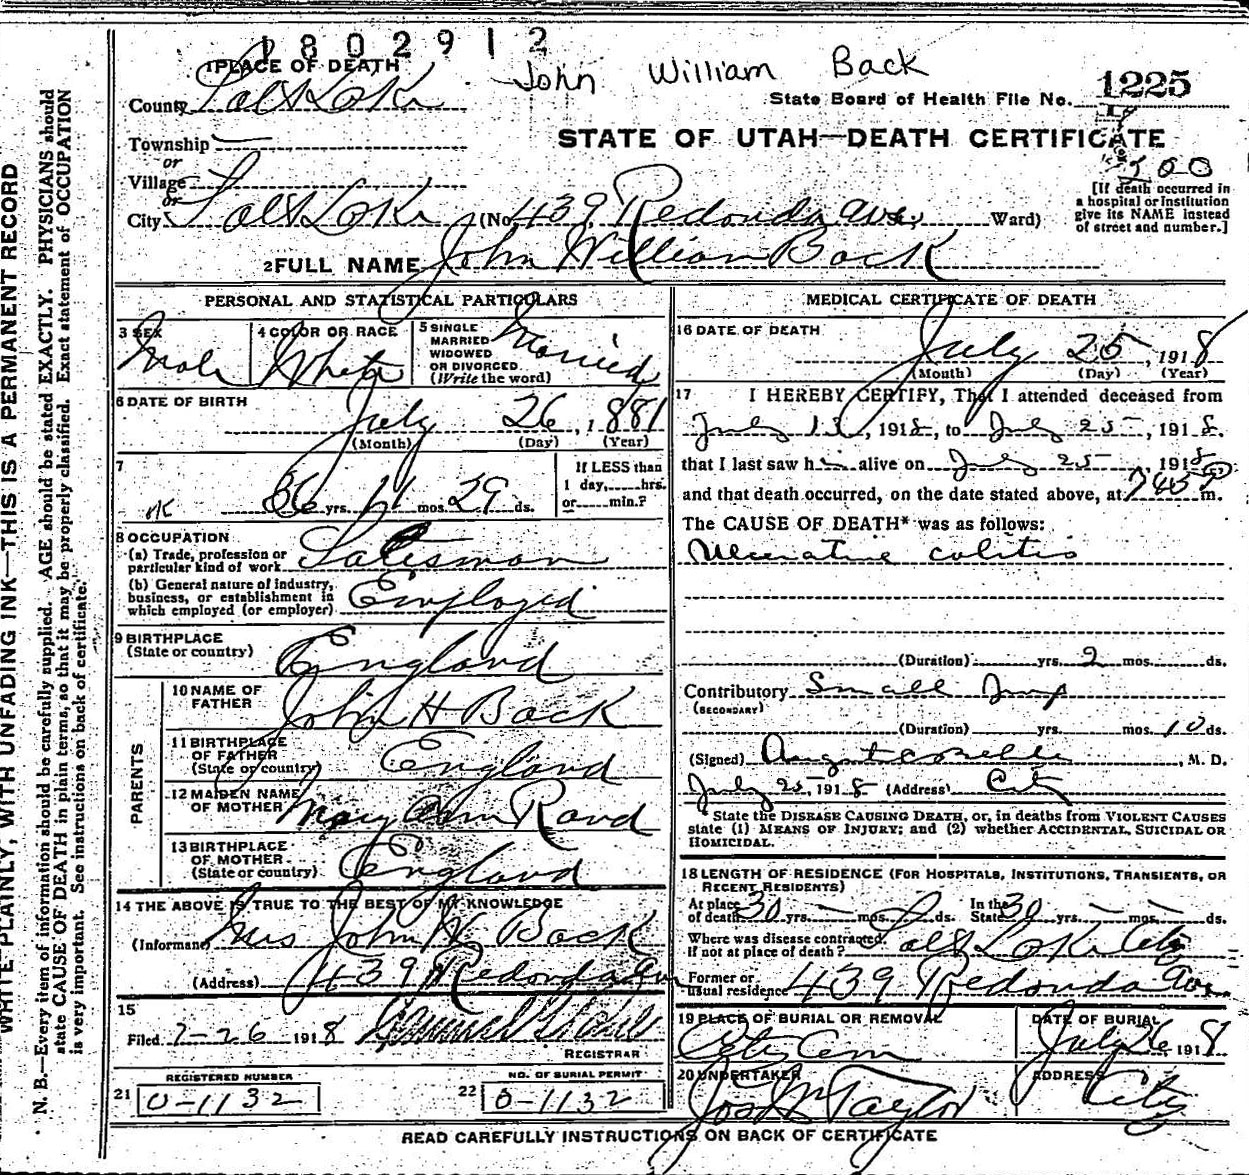 1802912
John William Back
1 PLACE OF DEATH
County Salt Lake
State Board of Health File No. 1225
Township
or
Village
or
City Salt Lake (No. 439 Redondo Ave., Ward)
STATE OF UTAH—DEATH CERTIFICATE
300
[If death occurred in
a hospital or Institution
give its NAME instead
of street and number.]
2 FULL NAME John William Back
PERSONAL AND STATISTICAL PARTICULARS
3 SEX
Male
4 COLOR OR RACE
White
5 SINGLE
MARRIED
WIDOWED
OR DIVORCED
(Write the word)
Married
6 DATE OF BIRTH
July 26, 1881
(Month) (Day) (Year)
7
OK
36 yrs. 11 mos. 29 ds.
If LESS than
1 day,......hrs.
or......min.?
8 OCCUPATION
(a) Trade, profession or
particular kind of work Salesman
(b) General nature of industry,
business, or establishment in
which employed (or employer) Employed
9 BIRTHPLACE
(State or country) England
PARENTS
10 NAME OF
FATHER John H Back
11 BIRTHPLACE
OF FATHER
(State or country) England
12 MAIDEN NAME
OF MOTHER Mary Ann Rand
13 BIRTHPLACE
OF MOTHER
(State or country) England
14 THE ABOVE IS TRUE TO THE BEST OF MY KNOWLEDGE
(Informant) Mrs John W. Back
(Address) 439 Redondo Ave
15
Filed 7-26 1918
REGISTRAR
REGISTERED NUMBER
21 0-1132
NO. OF BURIAL PERMIT
22 0-1132
MEDICAL CERTIFICATE OF DEATH
16 DATE OF DEATH
July 25, 1918
(Month) (Day) (Year)
17 I HEREBY CERTIFY, That I attended deceased from
July 13, 1918, to July 25, 1918.
that I last saw him alive on July 25 1918
and that death occurred, on the date stated above, at 745 P m.
The CAUSE OF DEATH* was as follows:
Ulcerative colitis
(Duration) yrs. 2 mos. ds.
Contributory Small
(SECONDARY)
(Duration) yrs. mos. 10 ds.
(Signed) M. D.
July 25, 1918 (Address) City
* State the DISEASE CAUSING DEATH, or, in deaths from VIOLENT CAUSES
state (1) MEANS OF INJURY; and (2) whether ACCIDENTAL, SUICIDAL OR
HOMICIDAL.
18 LENGTH OF RESIDENCE (FOR HOSPITALS, INSTITUTIONS, TRANSIENTS, OR
RECENT RESIDENTS)
At place
of death 30 yrs. — mos. ds. In the
State 30 yrs. — mos. — ds.
Where was disease contracted,
if not at place of death? Salt Lake City
Former or
usual residence 439 Redondo Ave.
19 PLACE OF BURIAL OR REMOVAL
City Cem
DATE OF BURIAL
July 26 1918
20 UNDERTAKER
Jos Wm Taylor
ADDRESS
City
READ CAREFULLY INSTRUCTIONS ON BACK OF CERTIFICATE
WRITE PLAINLY, WITH UNFADING INK—THIS IS A PERMANENT RECORD
N. B.—Every item of information should be carefully supplied. AGE should be stated EXACTLY. PHYSICIANS should
state CAUSE OF DEATH in plain terms, so that it may be properly classified. Exact statement of OCCUPATION
is very important. See instructions on back of certificate.